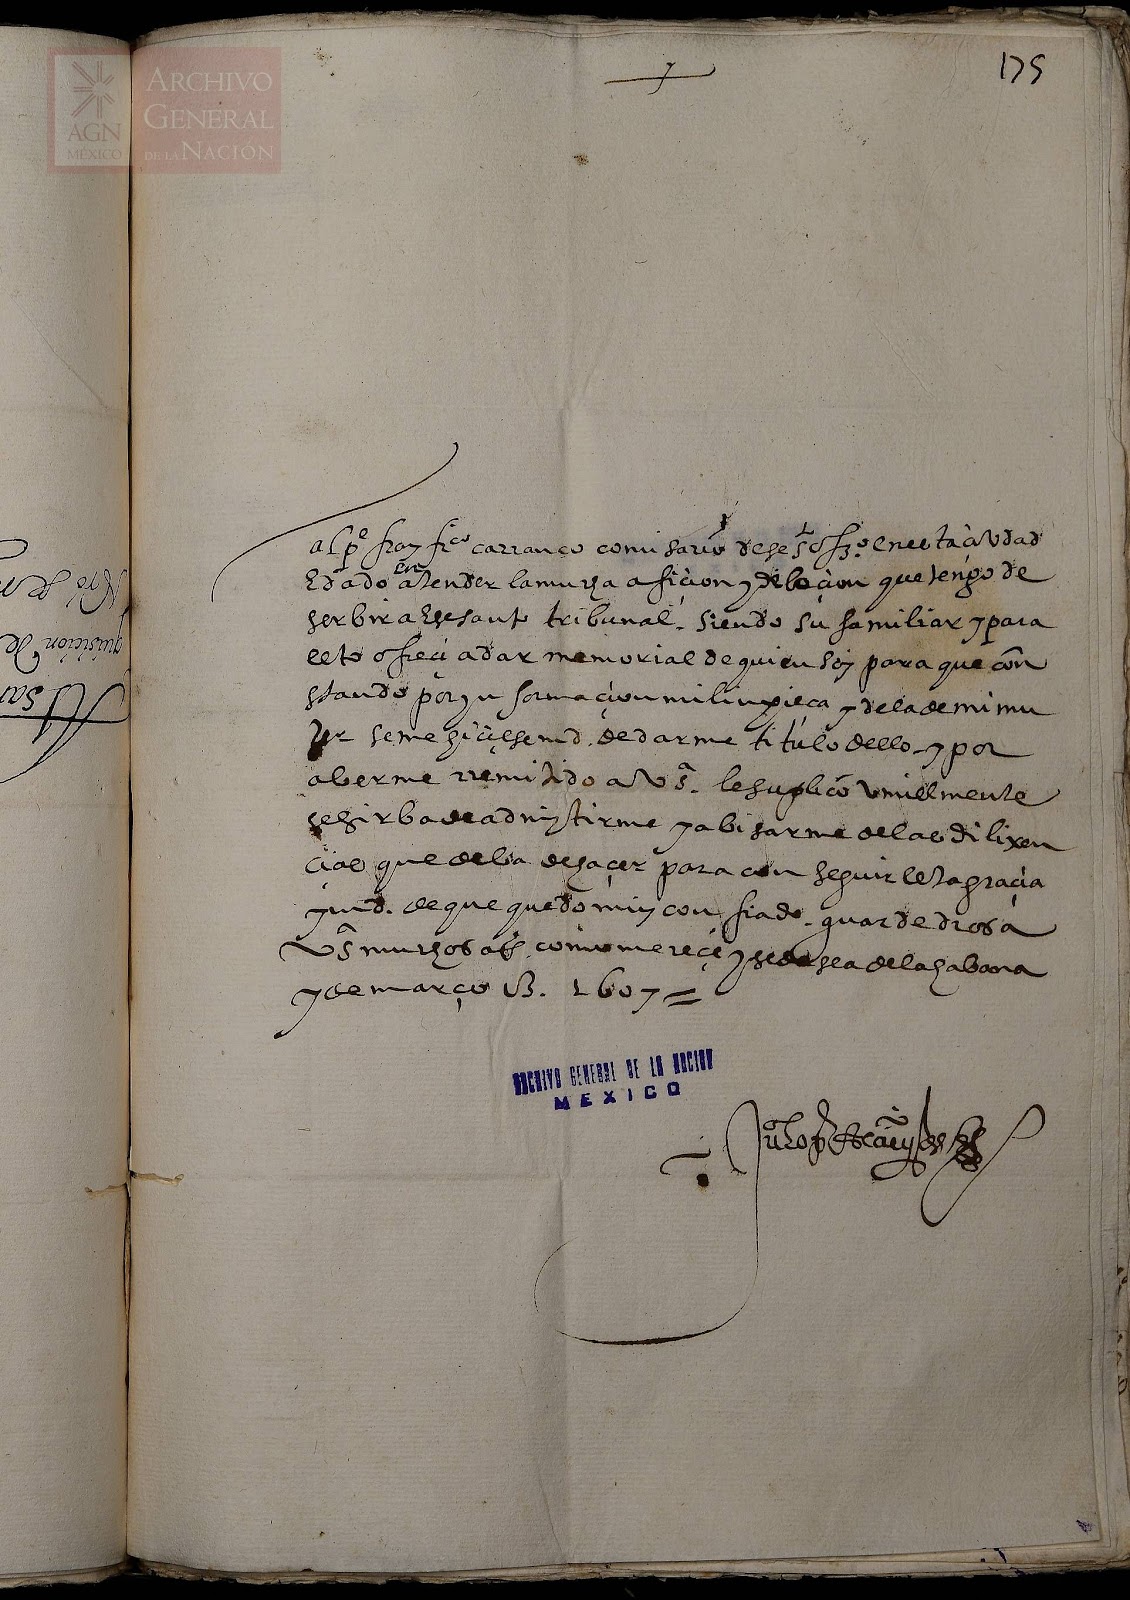 175
ARCHIVO
GENERAL
DE LA NACIÓN
AGN
MÉXICO
al pe fray frco carranco comisario dese sto offo en esta ciudad
e dado en atender la mucha aficion y deboçion que tengo de
serbir a ese santo tribunal. siendo su familiar y para
esto ofreci a dar memorial de quien soy para que con
stando por ynformaçion mi linpieça y de la de mi mu
ger se me hiçiese md. de darme titulo dello. y por
aberme rremitido a V Sa. le suplico umillmente
se sirba de admytirme y abisarme de las dilixen
cias que deba de haçer para con seguir esta graçia
y md. de que quedo muy confiado. guarde dios a
V Sa muchos as. como mereçe y se desea de la habana
y de março 1607
ARCHIVO GENERAL DE LA NACION
MEXICO